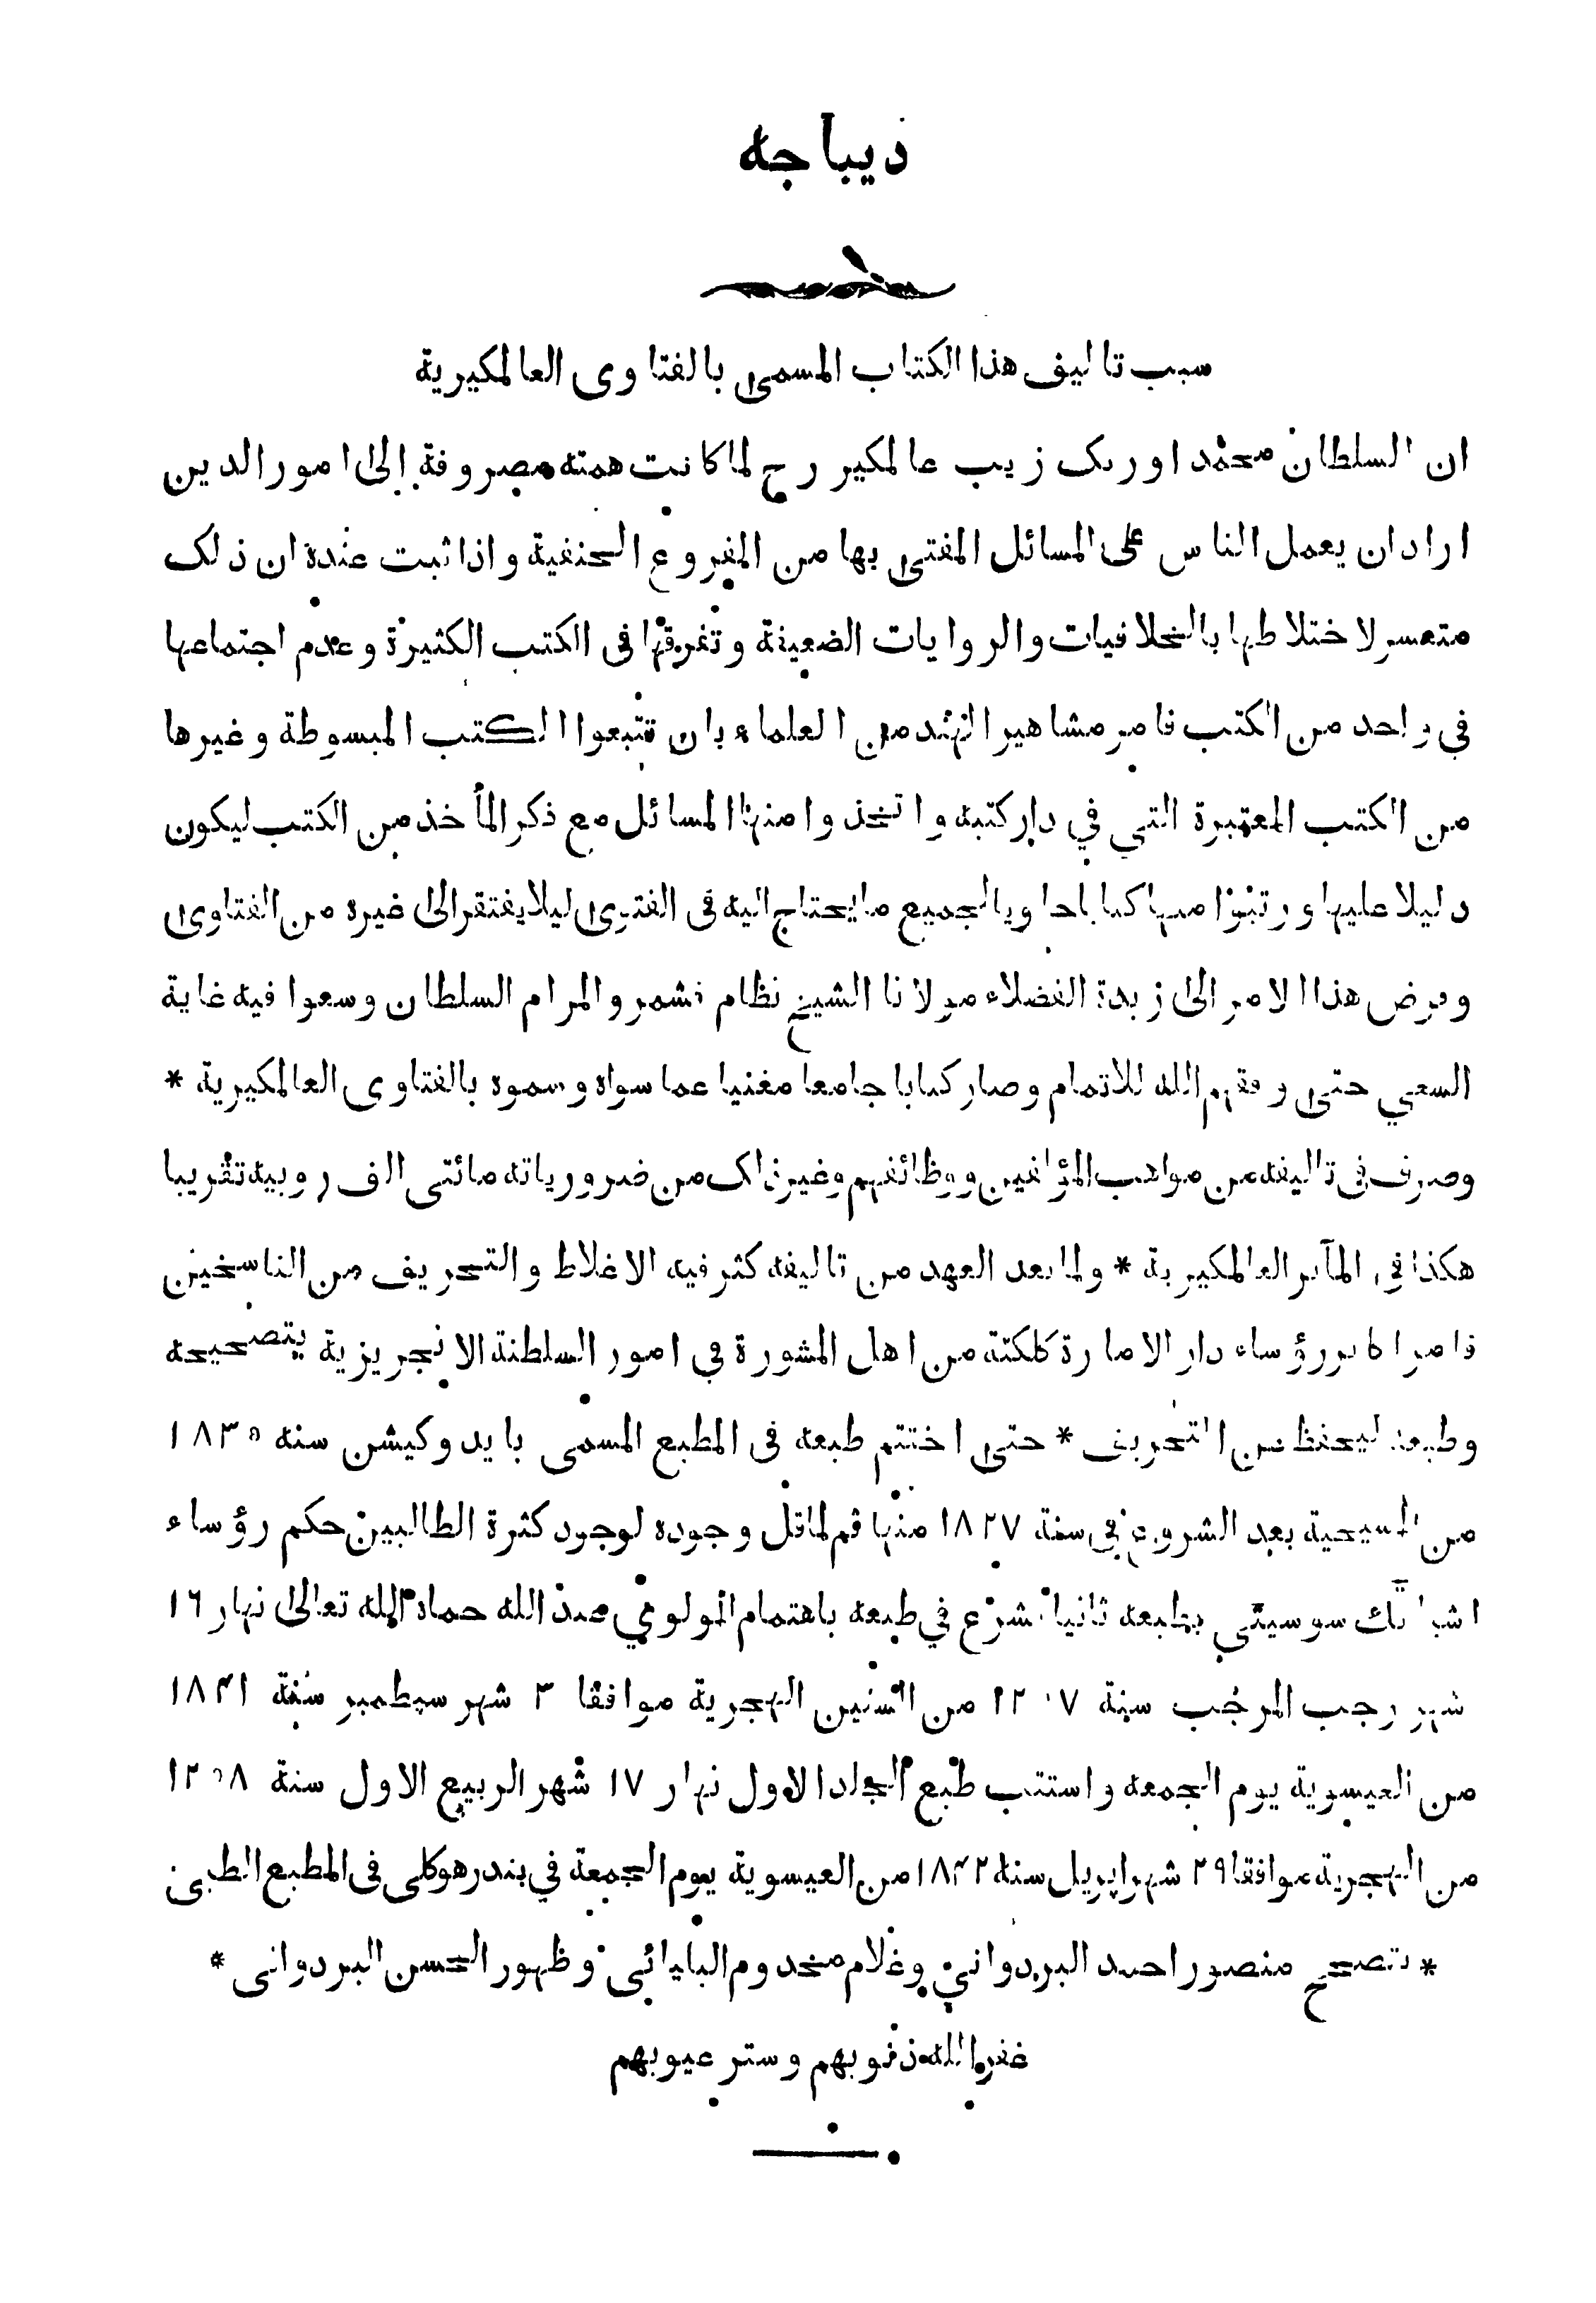 ديباجه
سبب تاليف هذا الكتاب المسمى بالفتاوى العالمكيرية
ان السلطان محمد اورنك زيب عالمكير رح لما كانت همته مصروفة الى امور الدين
اراد ان يعمل الناس على المسائل المفتى بها من الفروع الحنفية و اذا ثبت عنده ان ذلك
متعسر لاختلاطها بالخلافيات والروايات الضعيفة و تفرقها فى الكتب الكثيرة و عدم اجتماعها
في واحد من الكتب فامر مشاهير الهند من العلماء بان تتبعوا الكتب المبسوطة و غيرها
من الكتب المعتبرة التي في دار كتبه و اتخذوا منها المسائل مع ذكر المأخذ من الكتب ليكون
دليلا عليها و رتبوا منها كتابا حاويا لجميع ما يحتاج اليه فى الفتوى ليلا يفتقر الى غيره من الفتاوى
و فوض هذا الامر الى زبدة الفضلاء مولانا الشيخ نظام فشمروا لمرام السلطان و سعوا فيه غاية
السعي حتى و فقهم الله للاتمام و صار كتابا جامعا مغنيا عما سواه و سموه بالفتاوى العالمكيرية *
و صرف في تاليفه من مواهب المؤلفين و وظائفهم و غير ذلك من ضرورياته مائتى الف روبيه تقريبا
هكذا في المآثر العالمكيرية * و لما بعد العهد من تاليفه كثر فيه الاغلاط و التحريف من الناسخين
فامر اكابر رؤساء دار الامارة كلكتة من اهل المشورة في امور السلطنة الانجريزية بتصحيحه
و طبعه ليحفظ عن التحريف * حتى اختتم طبعه فى المطبع المسمى بايدوكيشن سنه ١٨٣٥
من المسيحية بعد الشروع في سنة ١٨٢٧ منها ثم لما قل وجوده لوجود كثرة الطالبين حكم رؤساء
اشياتك سوسيتي بطبعه ثانيا فشرع في طبعه باهتمام المولوي عبد الله حماه الله تعالى نهار ١٦
شهر رجب المرجب سنة ١٢٥٧ من السنين الهجرية موافقا ٣ شهر سپطمبر سنة ١٨٤١
من العيسوية يوم الجمعه و استتب طبع الجلد الاول نهار ١٧ شهر الربيع الاول سنة ١٢٥٨
من الهجرية موافقا ٢٩ شهر اپريل سنه ١٨٤٢ من العيسوية يوم الجمعة في بندر هوكلى فى المطبع الطبى
* بتصحيح منصور احمد البردواني و غلام مخدوم و ظهور الحسن البردوانى *
غفر الله ذنوبهم و ستر عيوبهم